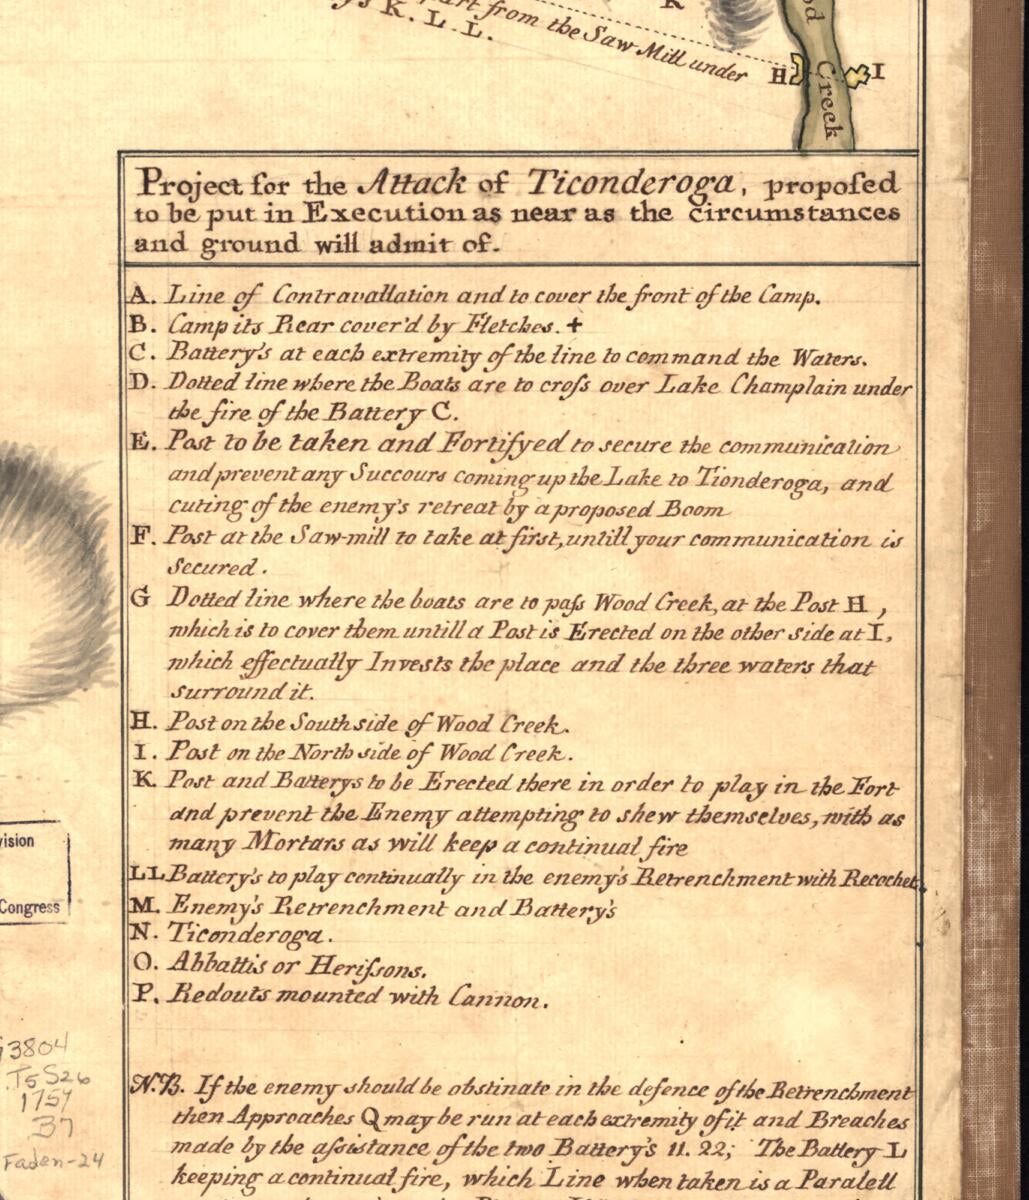 part from the Saw Mill under
K. L. L.
K
od
Creek
H
I
Project for the Attack of Ticonderoga, proposed
to be put in Execution as near as the circumstances
and ground will admit of.
A. Line of Contravallation and to cover the front of the Camp.
B. Camp its Rear cover'd by Fletches. +
C. Battery's at each extremity of the line to command the Waters.
D. Dotted line where the Boats are to cross over Lake Champlain under
the fire of the Battery C.
E. Post to be taken and Fortifyed to secure the communication
and prevent any Succours coming up the Lake to Tionderoga, and
cuting of the enemy's retreat by a proposed Boom
F. Post at the Saw-mill to take at first, untill your communication is
secured.
G Dotted line where the boats are to pass Wood Creek, at the Post H,
which is to cover them untill a Post is Erected on the other side at I,
which effectually Invests the place and the three waters that
surround it.
H. Post on the South side of Wood Creek.
I. Post on the North side of Wood Creek.
K. Post and Batterys to be Erected there in order to play in the Fort
and prevent the Enemy attempting to shew themselves, with as
many Mortars as will keep a continual fire
LL Battery's to play continually in the enemy's Retrenchment with Recochet.
M. Enemy's Retrenchment and Battery's
N. Ticonderoga.
O. Abbattis or Herissons.
P. Redouts mounted with Cannon.
N.B. If the enemy should be obstinate in the defence of the Retrenchment
then Approaches Q may be run at each extremity of it and Breaches
made by the assistance of the two Battery's 11. 22; The Battery L
keeping a continual fire, which Line when taken is a Paralell
vision
Congress
3804
.T5 S26
175
B7
Faden-24